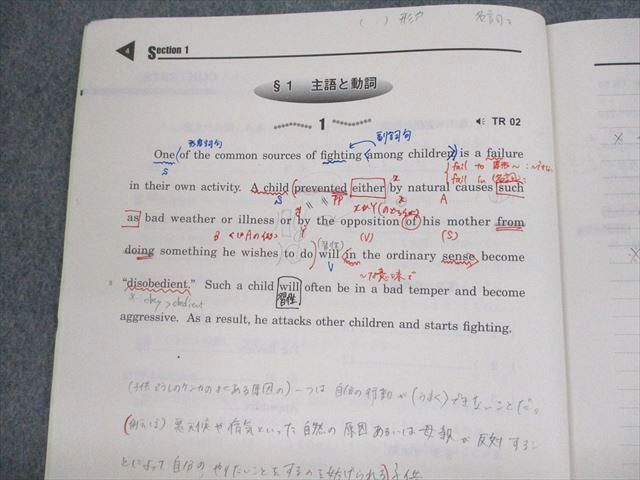 ( ) 形や 名詞
4 Section 1
§1 主語と動詞
1
TR 02
形容詞句
副詞句
One (of the common sources of fighting (among children)) is a failure
S
fail to 原形
fail in 名詞
in their own activity. A child (prevented either by natural causes such
S
PP
X
A
as bad weather or illness or by the opposition of his mother from
B
Y
(V)
(S)
(習性)
doing something he wishes to do) will (in the ordinary sense) become
V
5 "disobedient." Such a child will often be in a bad temper and become
習性
〜な意味で
obey > obedient
aggressive. As a result, he attacks other children and starts fighting.
(子供どうしのケンカのよくある原因の)一つは自分の行動が(うまく)できないことだ。
(例えば)悪天候や病気といった自然の原因あるいは母親が反対するこ
とによって自分の やりたいことをするのを妨げられる)子供